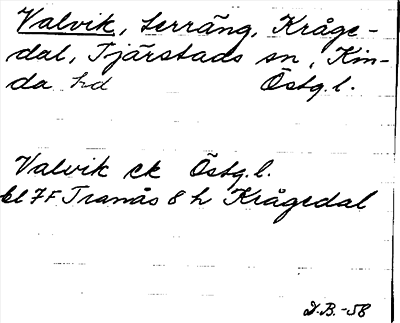 Valvik, Serräng, Kråge-
dal, Tjärstads sn, Kin-
da hd Östg.l.
Valvik ek Östg.l.
bl 7F Tranås 8 h Krågedal
D.B.-58